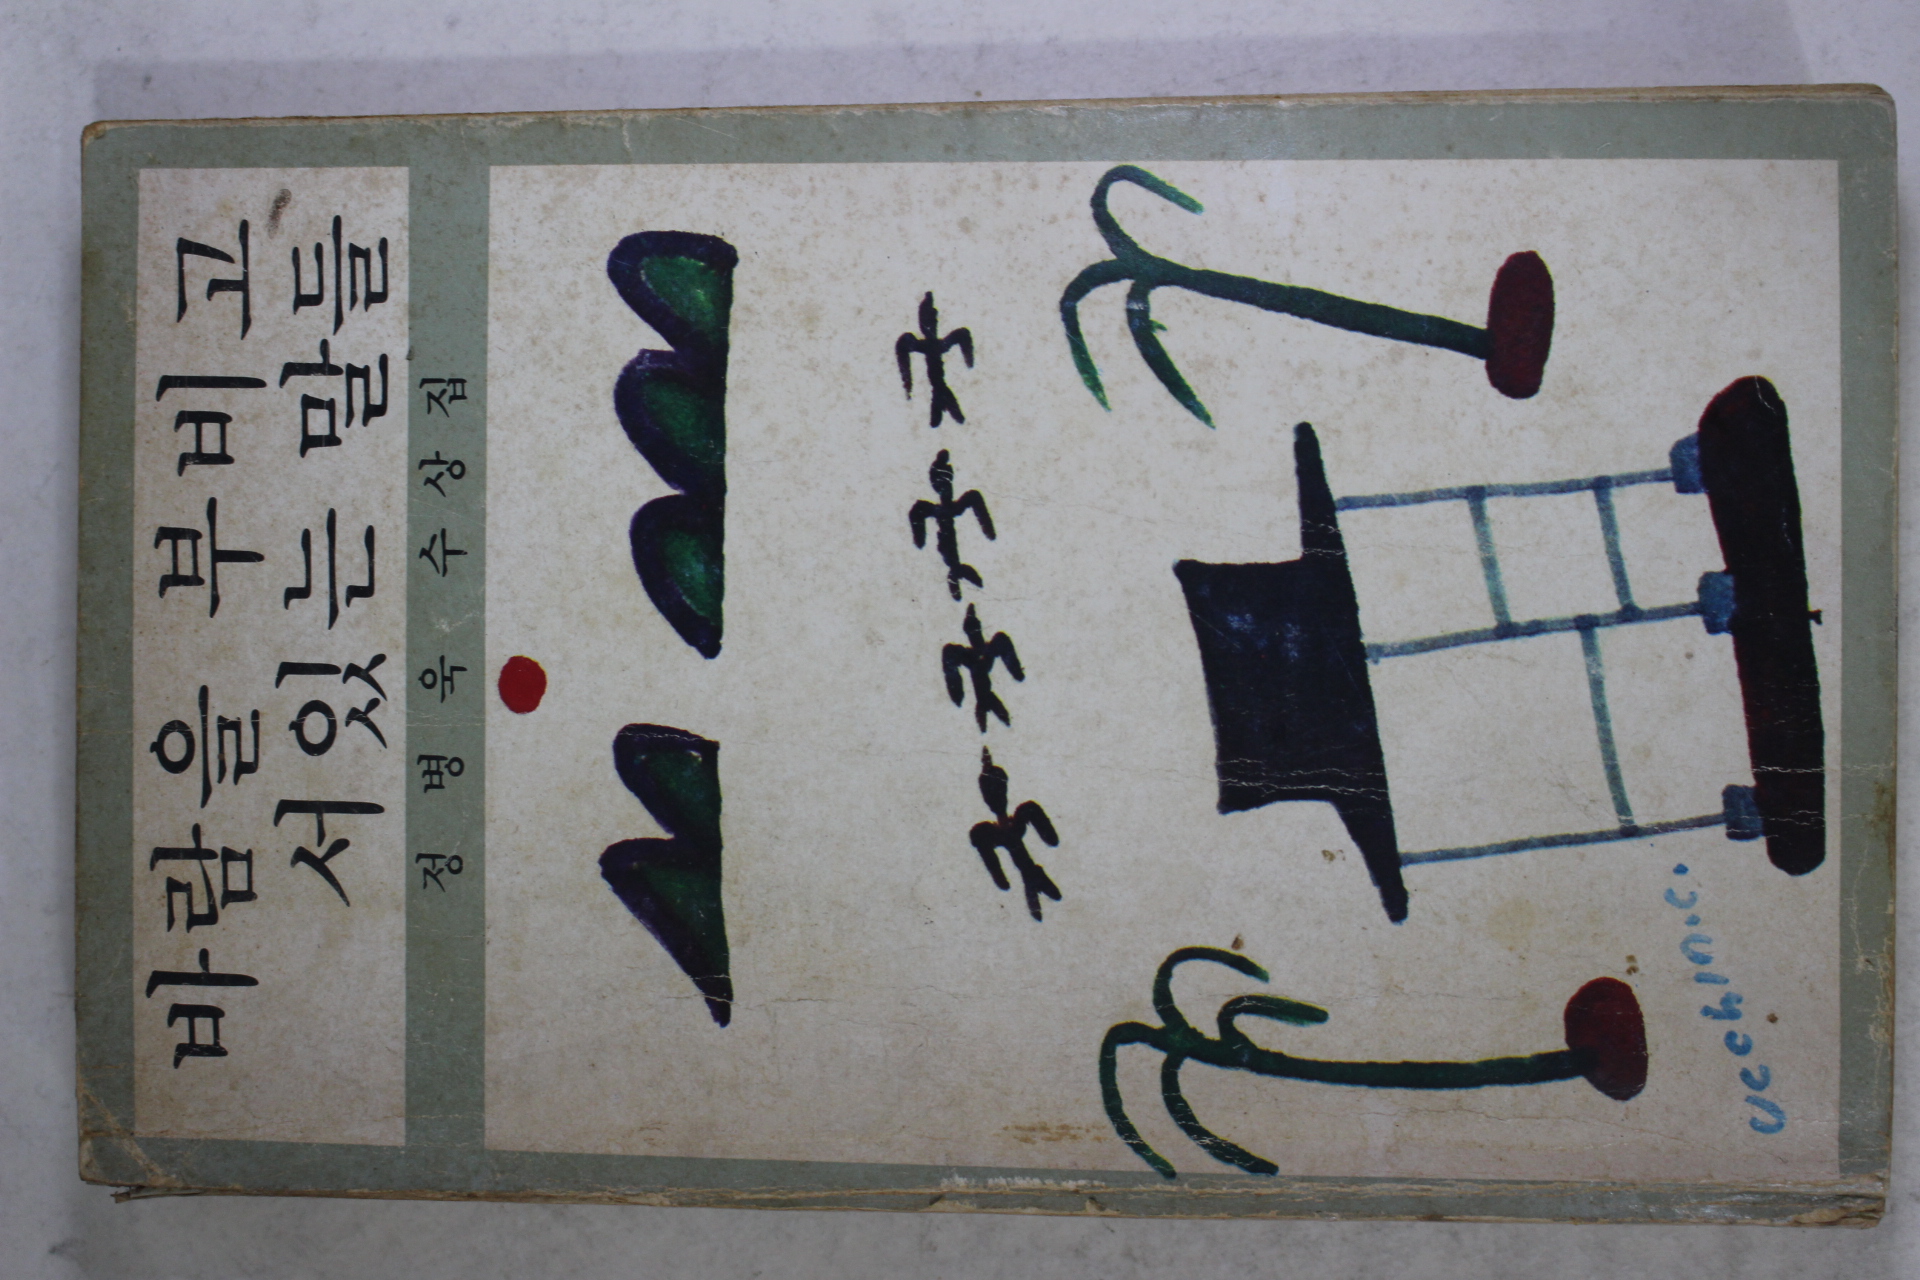 바람을 부비고
서있는 말들
정병욱 수상집
ucchinc.